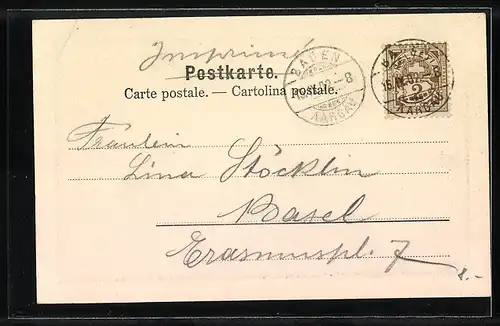 Imprimé
Postkarte.
Carte postale. — Cartolina postale.
BADEN
AARGAU
BADEN
16.IV.02–8
AARGAU
2
Fräulein
Lina Stöcklin
Basel
Erasmuspl. 7